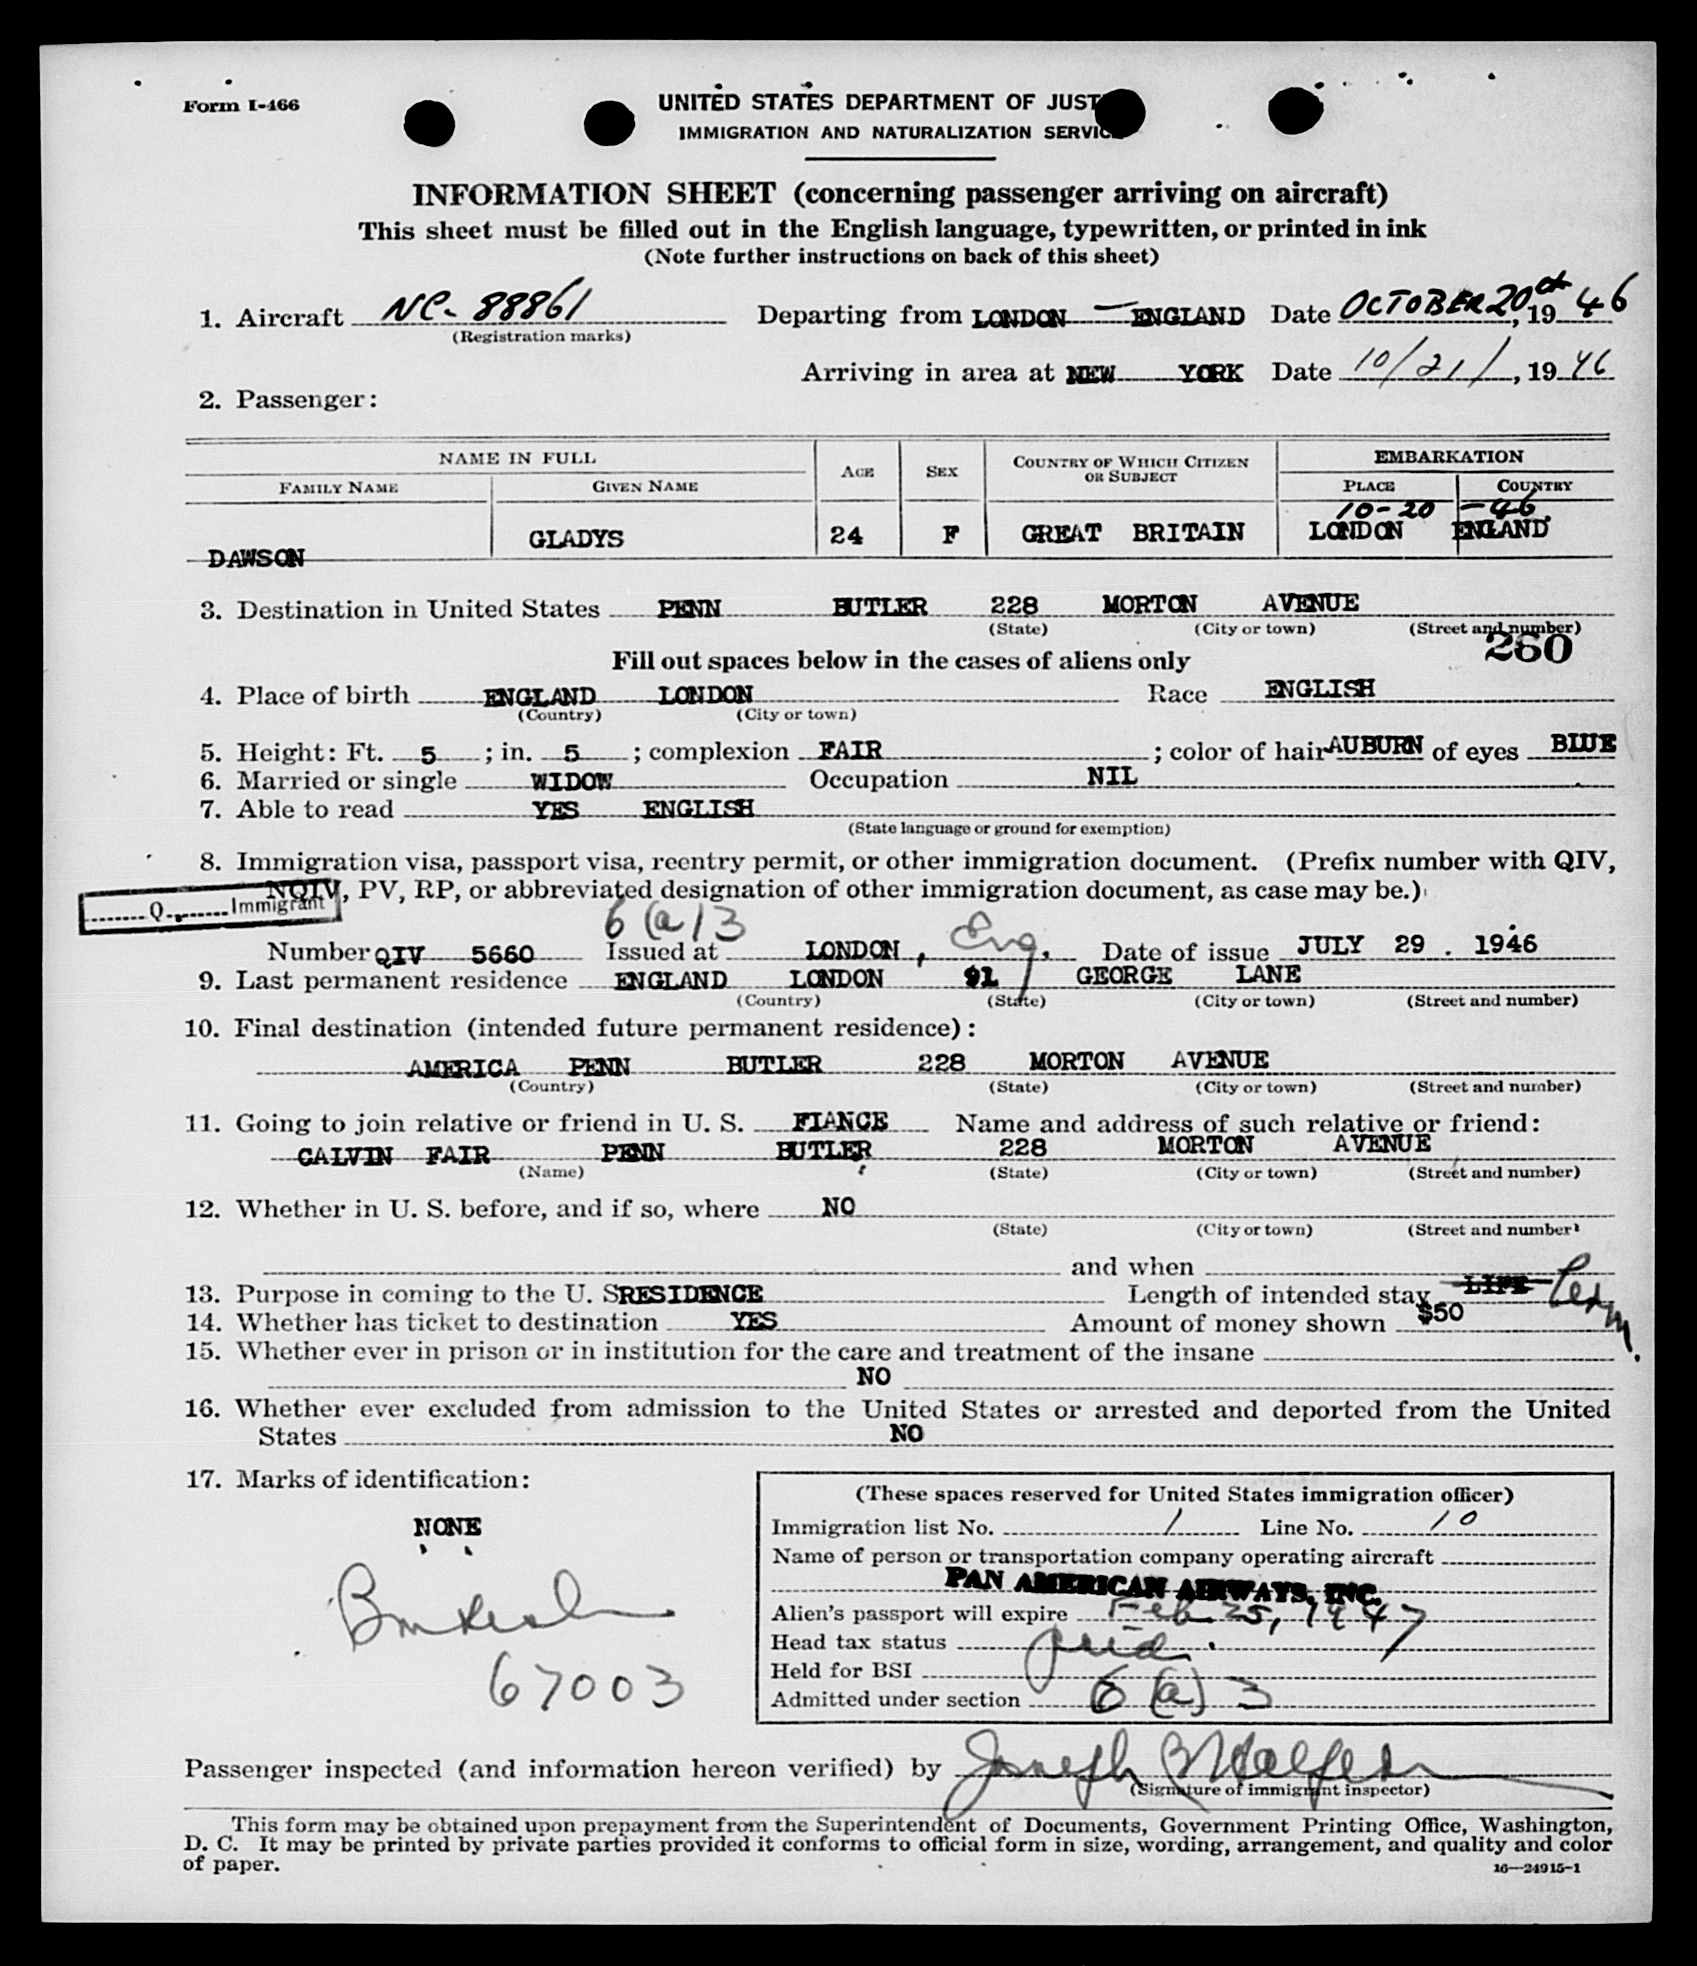 Form I-466
UNITED STATES DEPARTMENT OF JUST
IMMIGRATION AND NATURALIZATION SERVIC
INFORMATION SHEET (concerning passenger arriving on aircraft)
This sheet must be filled out in the English language, typewritten, or printed in ink
(Note further instructions on back of this sheet)
1. Aircraft NC-88861 Departing from LONDON — ENGLAND Date OCTOBER 20th, 1946
(Registration marks)
Arriving in area at NEW YORK Date 10/21/, 1946
2. Passenger:
NAME IN FULL AGE SEX COUNTRY OF WHICH CITIZEN OR SUBJECT EMBARKATION
FAMILY NAME GIVEN NAME PLACE COUNTRY
10-20-46
DAWSON GLADYS 24 F GREAT BRITAIN LONDON ENLAND
3. Destination in United States PENN BUTLER 228 MORTON AVENUE
(State) (City or town) (Street and number)
260
Fill out spaces below in the cases of aliens only
4. Place of birth ENGLAND LONDON Race ENGLISH
(Country) (City or town)
5. Height: Ft. 5; in. 5; complexion FAIR; color of hair AUBURN of eyes BLUE
6. Married or single WIDOW Occupation NIL
7. Able to read YES ENGLISH
(State language or ground for exemption)
8. Immigration visa, passport visa, reentry permit, or other immigration document. (Prefix number with QIV,
NQIV, PV, RP, or abbreviated designation of other immigration document, as case may be.)
Q. Immigrant
6(a)3
Number QIV 5660 Issued at LONDON, Eng. Date of issue JULY 29. 1946
9. Last permanent residence ENGLAND LONDON 91 GEORGE LANE
(Country) (State) (City or town) (Street and number)
10. Final destination (intended future permanent residence):
AMERICA PENN BUTLER 228 MORTON AVENUE
(Country) (State) (City or town) (Street and number)
11. Going to join relative or friend in U. S. FIANCE Name and address of such relative or friend:
CALVIN FAIR PENN BUTLER 228 MORTON AVENUE
(Name) (State) (City or town) (Street and number)
12. Whether in U. S. before, and if so, where NO
(State) (City or town) (Street and number)
and when
13. Purpose in coming to the U. S RESIDENCE Length of intended stay LIFE Perm.
14. Whether has ticket to destination YES Amount of money shown $50
15. Whether ever in prison or in institution for the care and treatment of the insane
NO
16. Whether ever excluded from admission to the United States or arrested and deported from the United
States NO
17. Marks of identification:
NONE
67003
(These spaces reserved for United States immigration officer)
Immigration list No. 1 Line No. 10
Name of person or transportation company operating aircraft
PAN AMERICAN AIRWAYS, INC.
Alien's passport will expire Feb 25, 1947
Head tax status paid.
Held for BSI
Admitted under section 6(a)3
Passenger inspected (and information hereon verified) by Joseph
(Signature of immigrant inspector)
This form may be obtained upon prepayment from the Superintendent of Documents, Government Printing Office, Washington,
D. C. It may be printed by private parties provided it conforms to official form in size, wording, arrangement, and quality and color
of paper.
16—24915-1